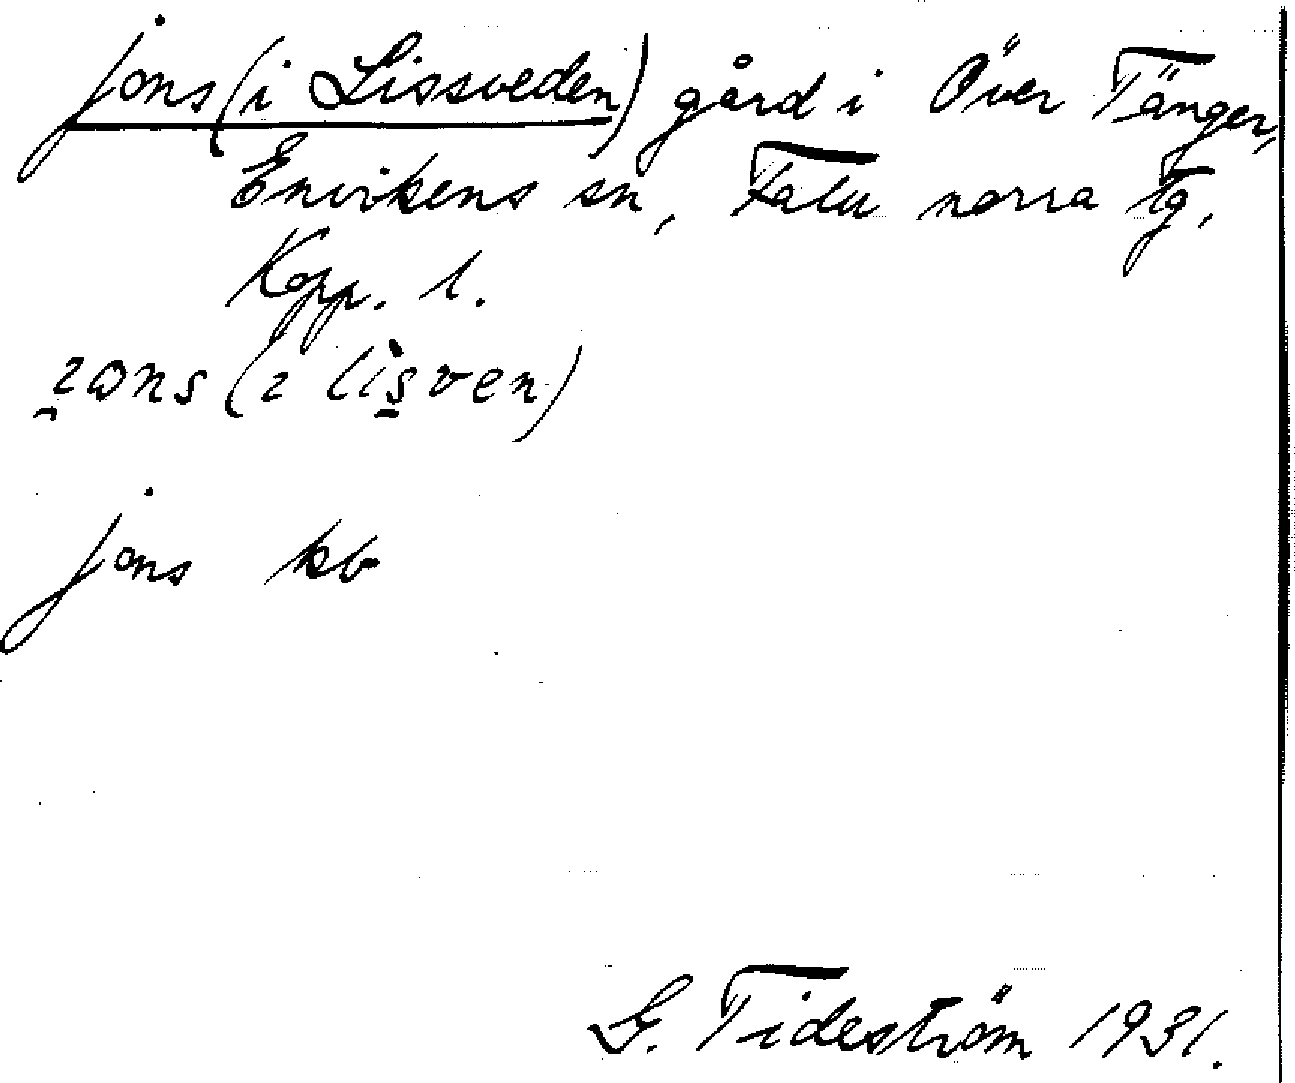 jons (i Lissveden) gård i Över Tänger,
Envikens sn, Falu norra tg,
Kopp. l.
ı̯ɷns (ı lìs̱ven)
jons kb
G. Tideström 1931.